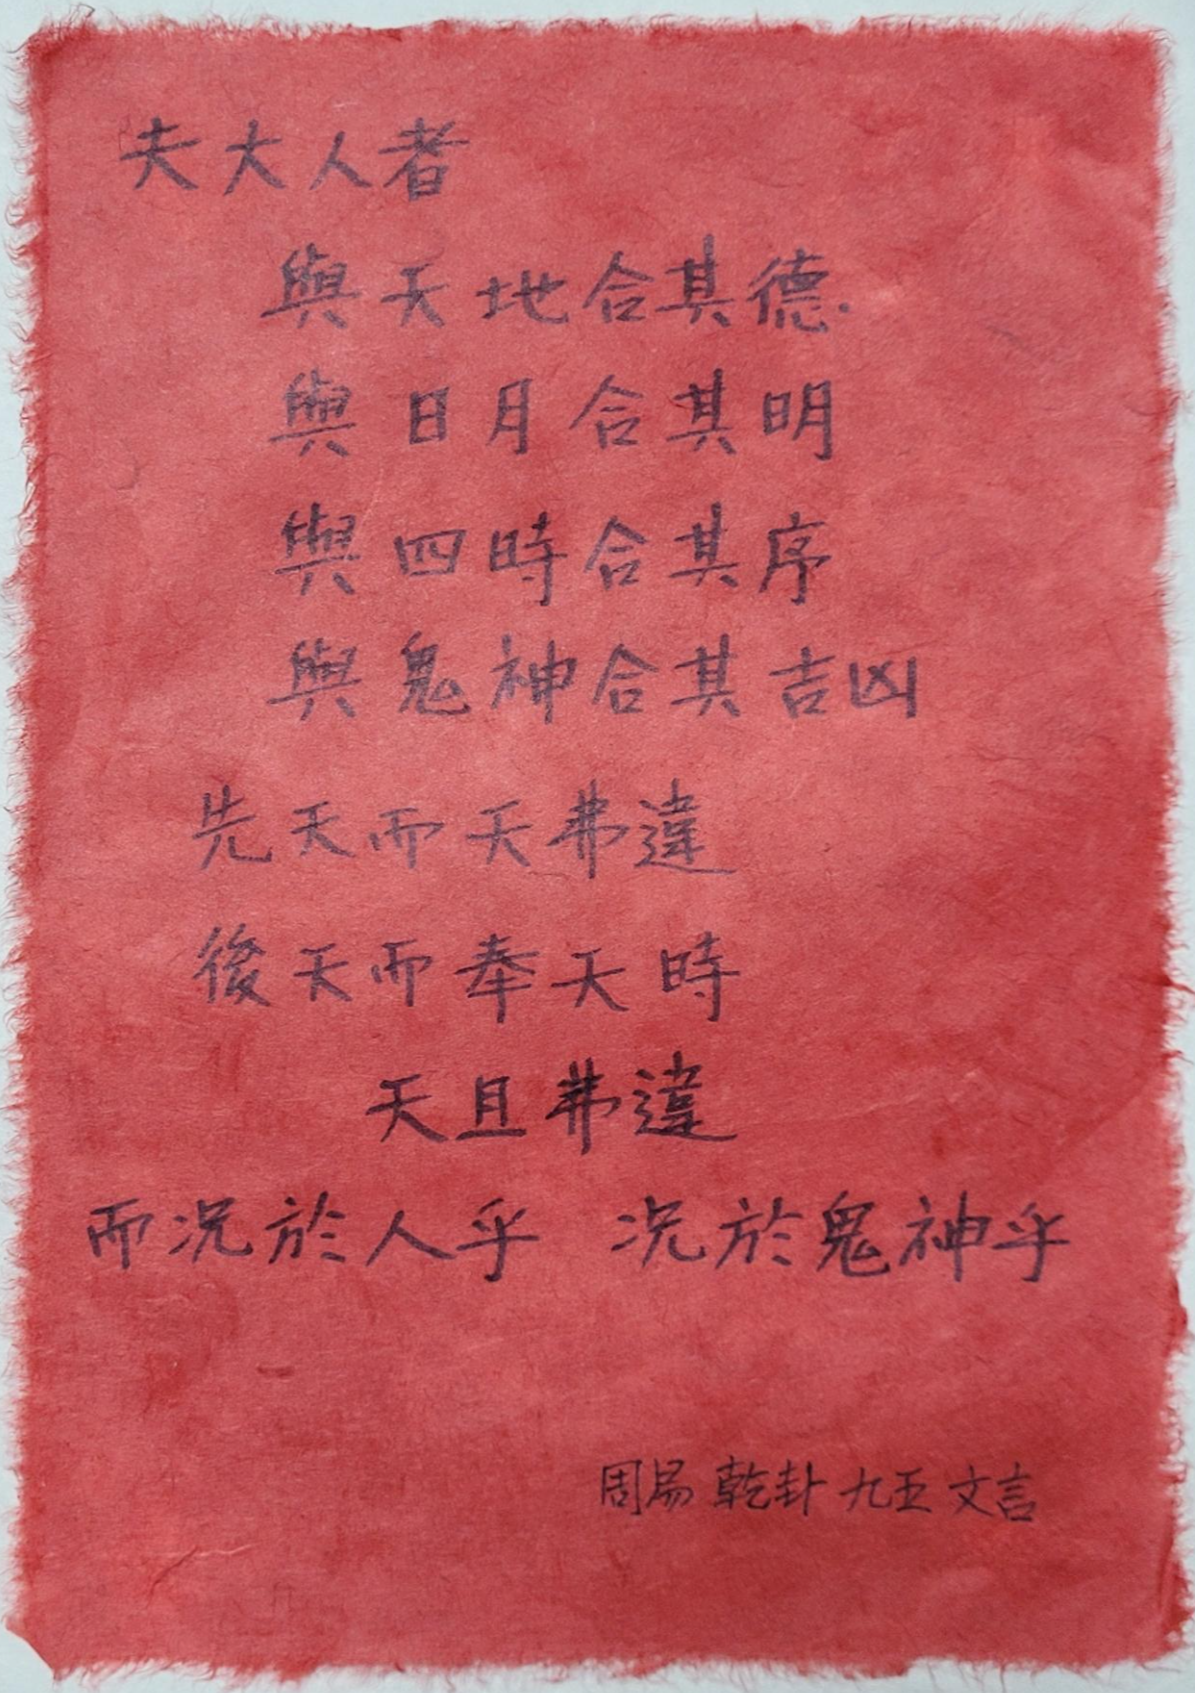 夫大人者
與天地合其德.
與日月合其明
與四時合其序
與鬼神合其吉凶
先天而天弗違
後天而奉天時
天且弗違
而况於人乎 况於鬼神乎
周易 乾卦 九五 文言